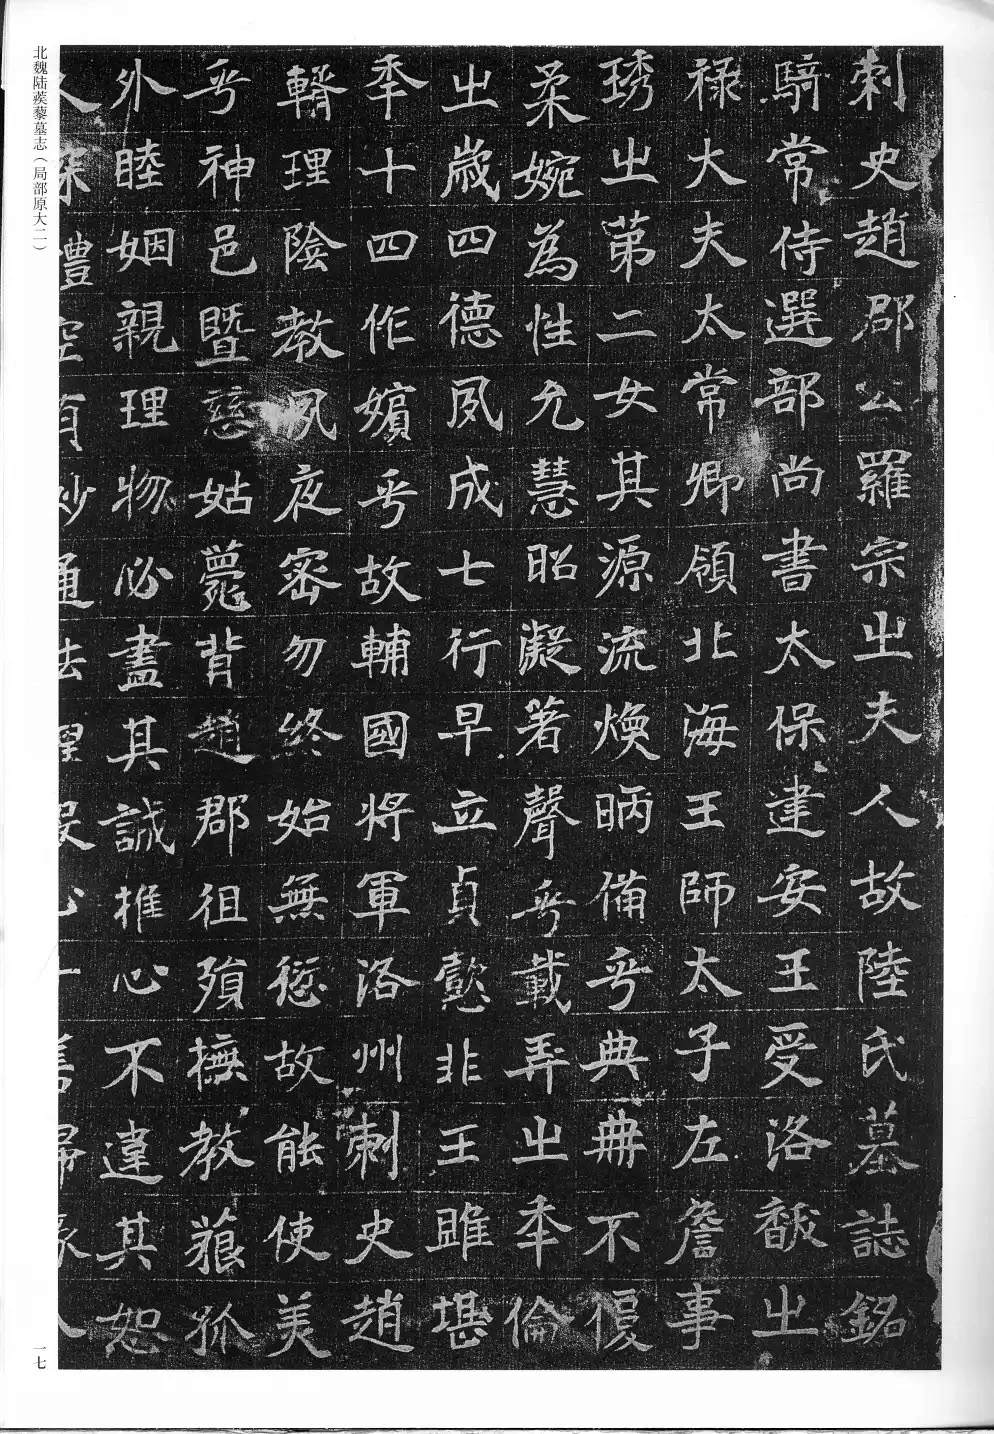 刺史趙郡公羅宗之夫人故陸氏墓誌銘
騎常侍選部尚書太保建安王受洛跋之
祿大夫太常卿領北海王師太子左詹事
琇之第二女其源流煥昞備乎典冊不復
柔婉為性允慧昭凝著聲乎載弄之年倫
之歲四德夙成七行早立貞懿非王雎堪
年十四作嬪乎故輔國將軍洛州刺史趙
輶理陰教夙夜密勿終始無愆故能使美
乎神邑暨慈姑薨背趙郡徂殞撫教藐孤
外睦姻親理物必盡其誠推心不違其恕
人深體空有妙通法理
北魏陆蒺藜墓志（局部原大二）
一七